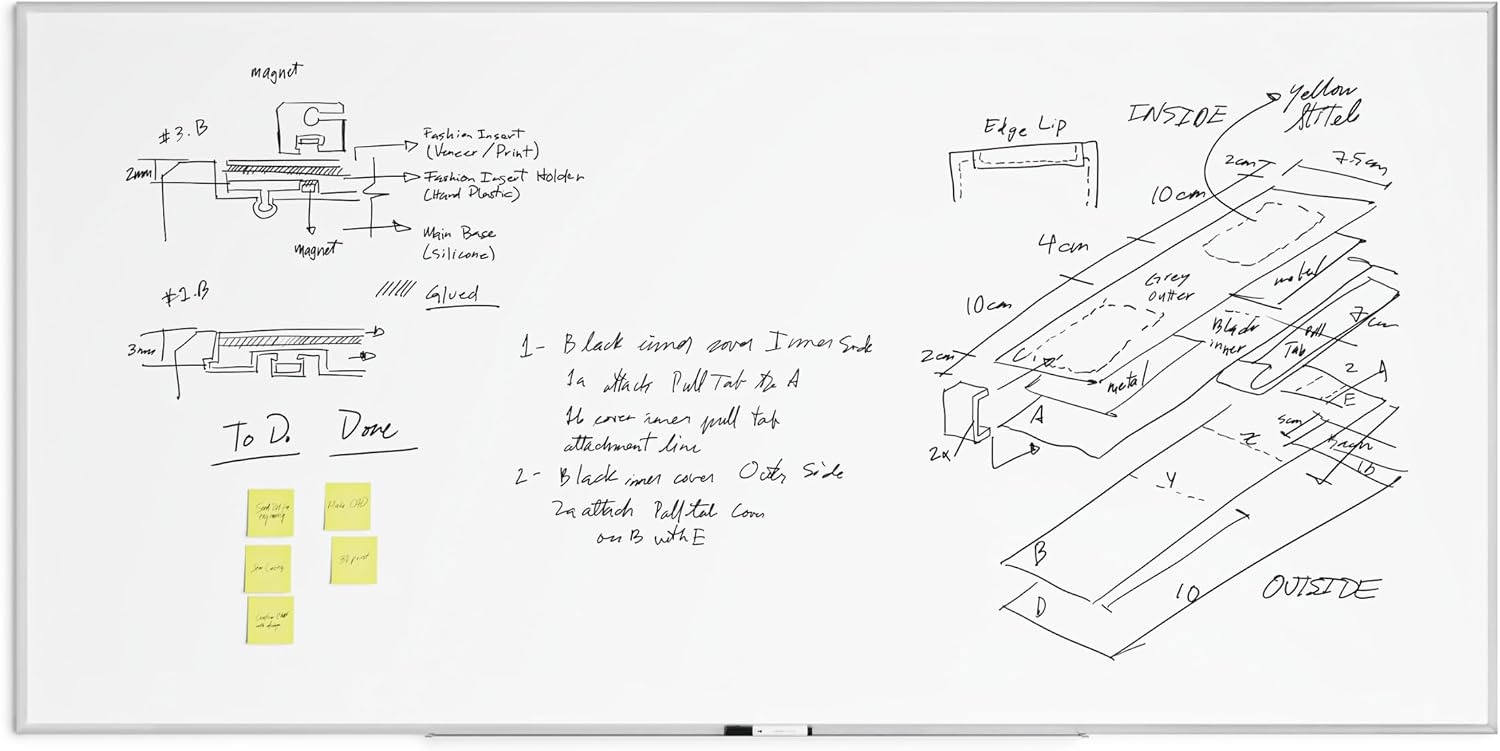 magnet
#3.B
2mm
Fashion Insert
(Veneer/Print)
Fashion Insert Holder
(Hard Plastic)
Main Base
(Silicone)
magnet
Glued
#1.B
3mm
To Do
Done
Make CAD
3D print
1- Black inner cover Inner Side
1a attach Pull Tab to A
1b cover inner pull tab
attachment line
2- Black inner cover Outer Side
2a attach Pull tab cover
on B with E
Edge Lip
INSIDE
Yellow
2cm
7.5cm
10cm
4cm
10cm
2cm
Grey
outter
metal
Black
inner
Pull
Tab
7cm
metal
C
A
2x
2
A
E
5cm
10
x
Y
B
D
10
OUTSIDE